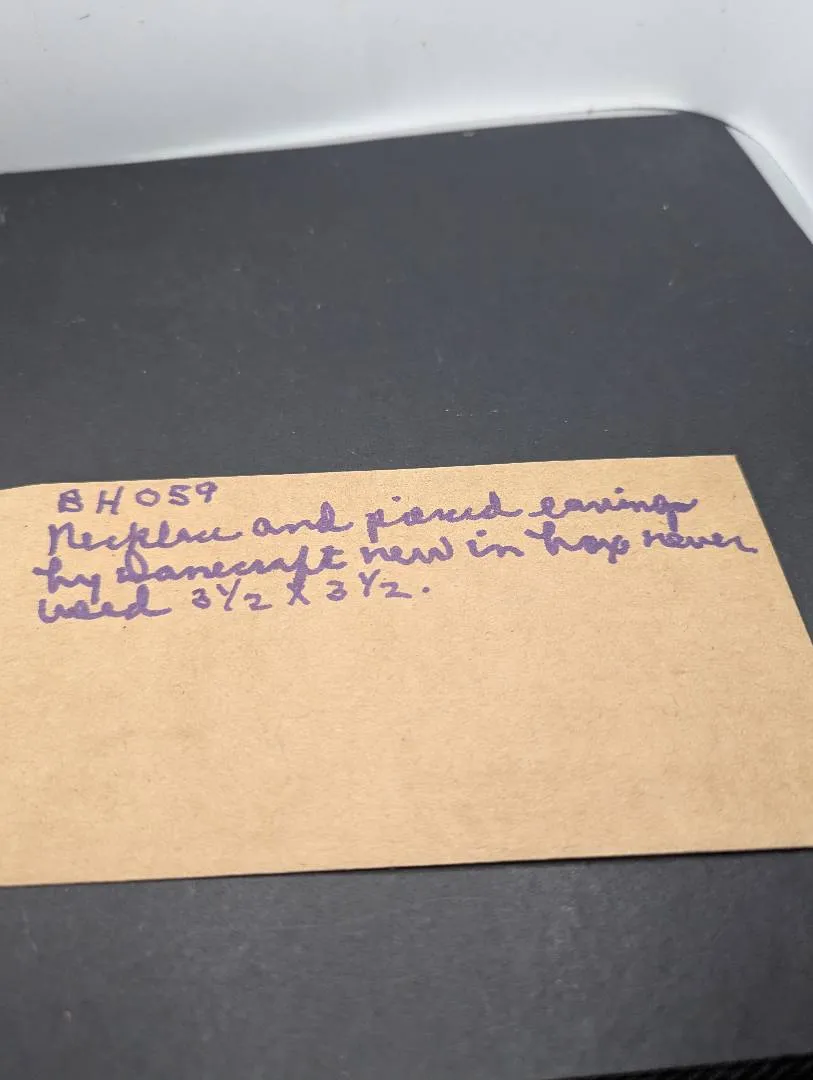 BH059
Necklace and pierced earrings
by Danecraft new in box never
used 3 1/2 X 3 1/2.